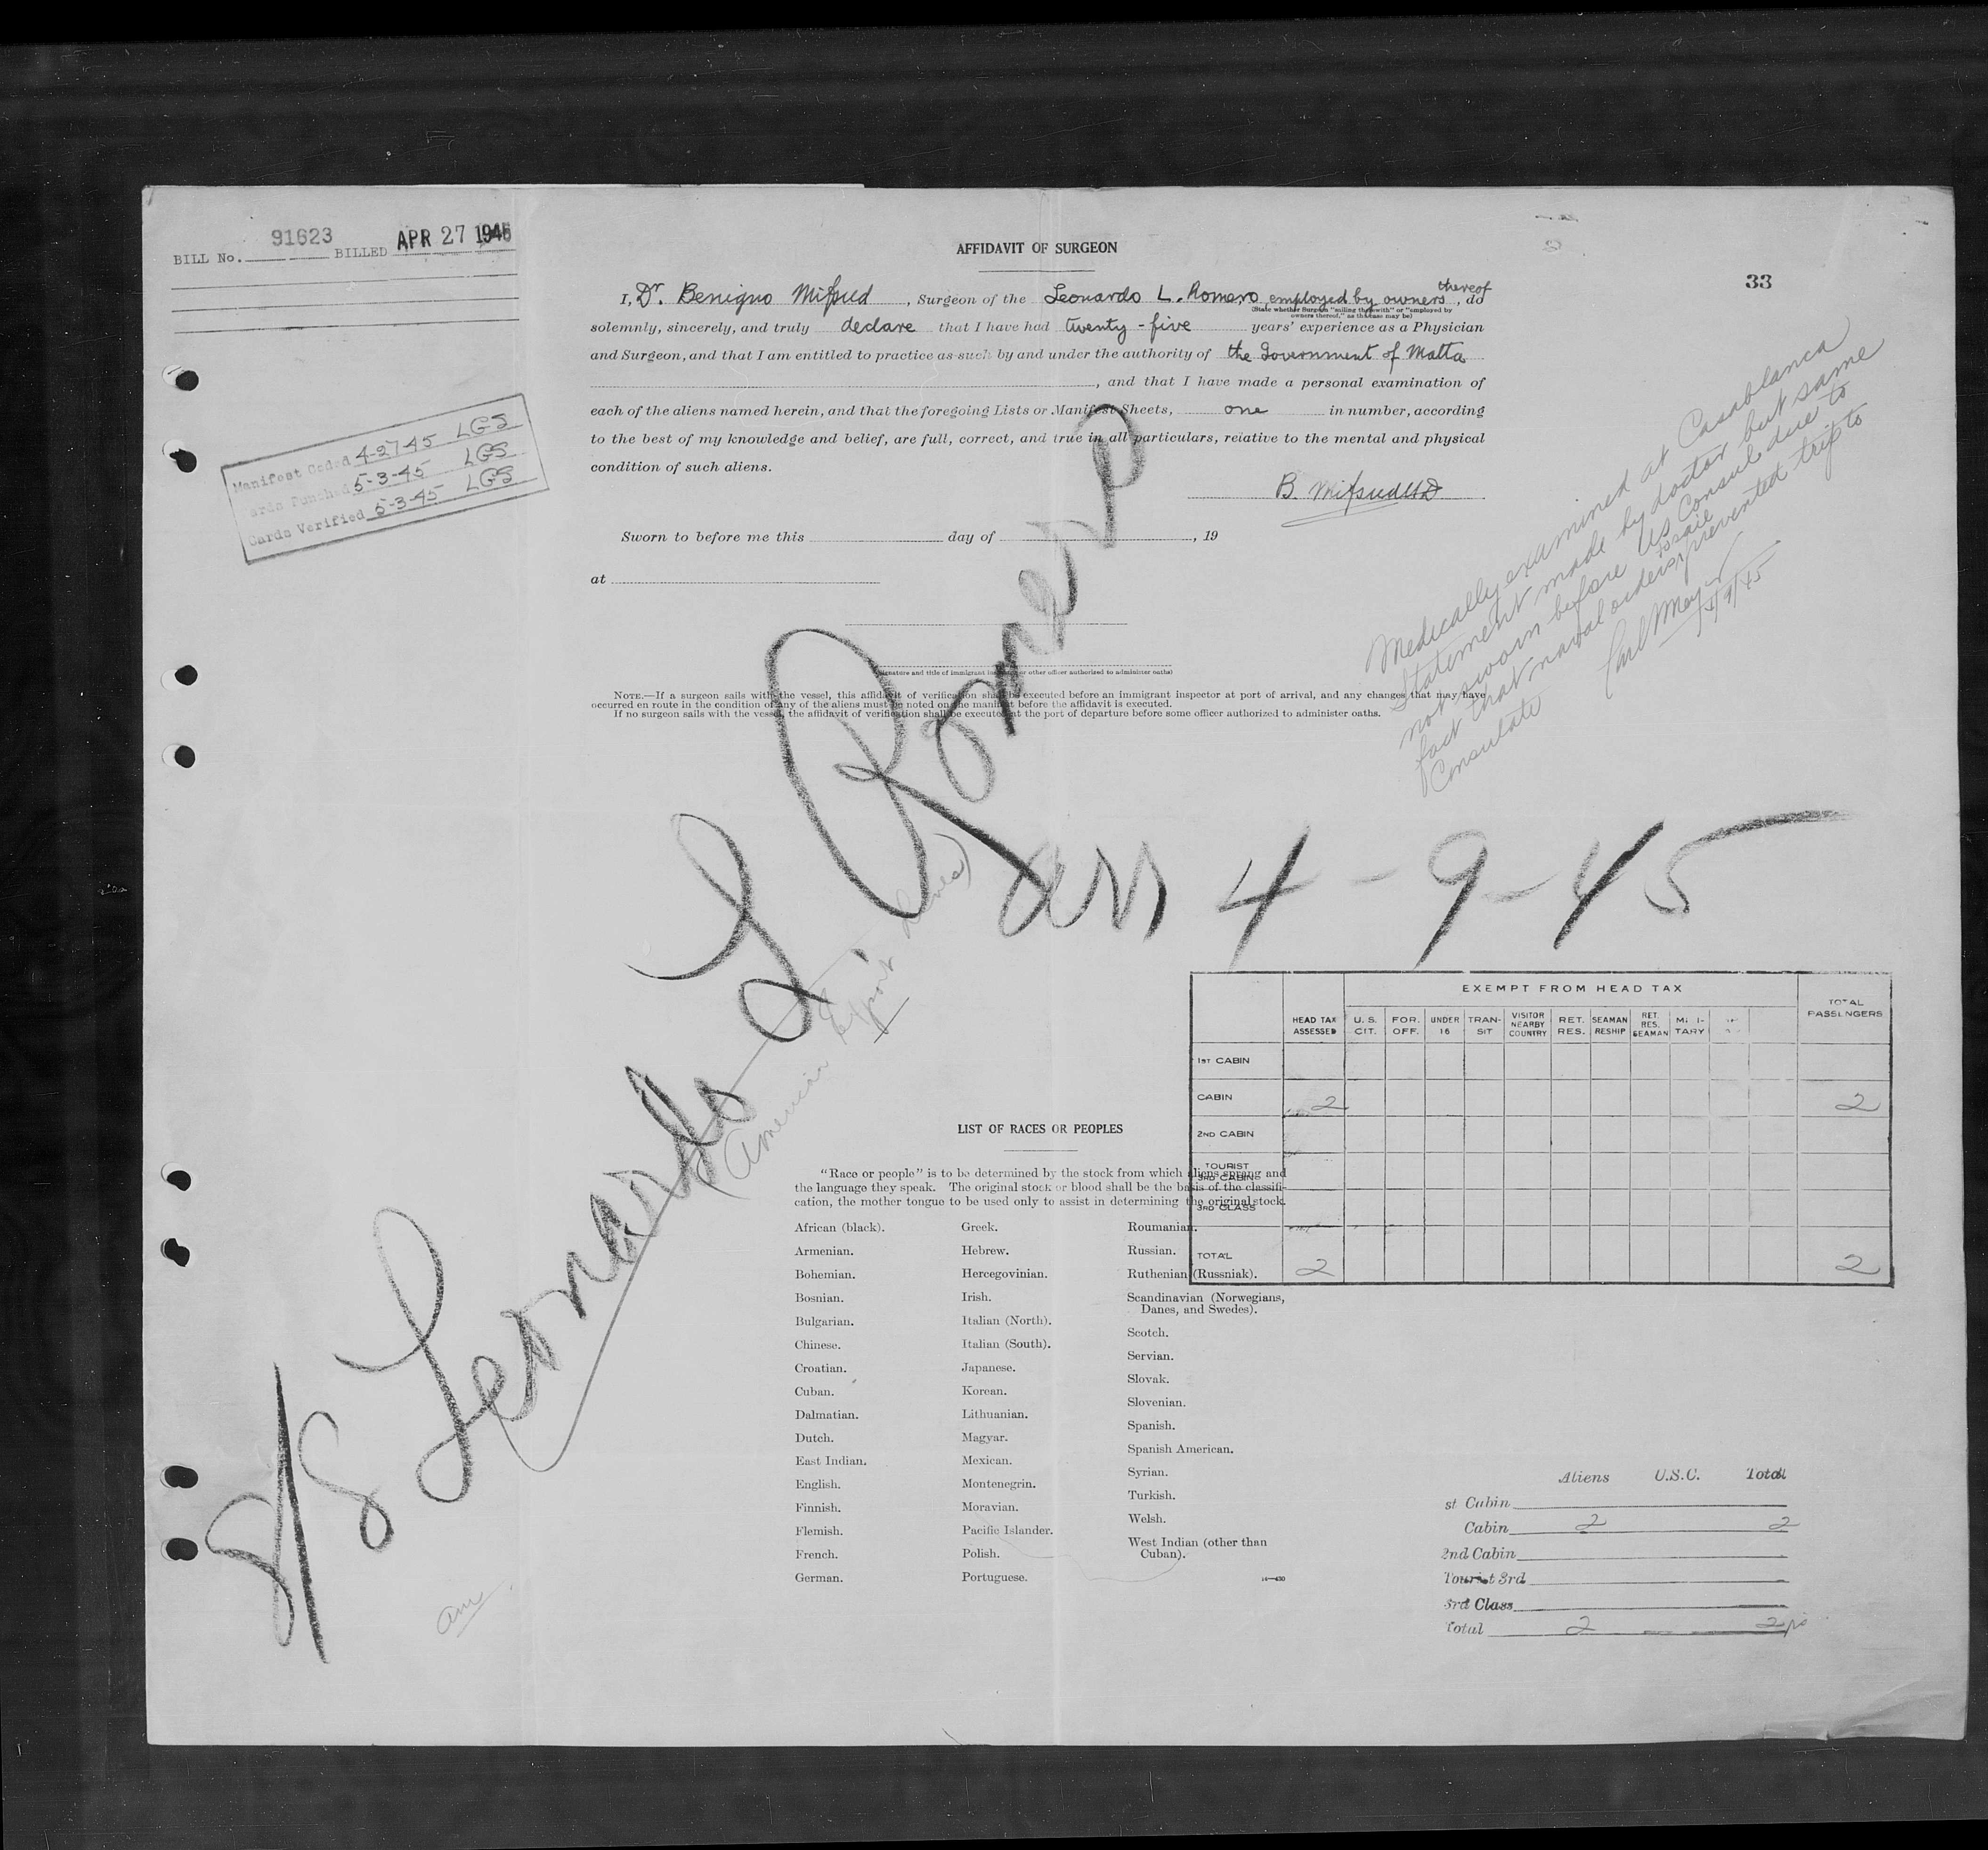 BILL No. 91623 BILLED APR 27 1945
33
AFFIDAVIT OF SURGEON
I, Dr. Benigno Mifsud, Surgeon of the Leonardo L. Romero, employed by owners thereof, do
(State whether Surgeon "sailing therewith" or "employed by
owners thereof," as the case may be)
solemnly, sincerely, and truly declare that I have had twenty-five years' experience as a Physician
and Surgeon, and that I am entitled to practice as such by and under the authority of the Government of Malta
, and that I have made a personal examination of
each of the aliens named herein, and that the foregoing Lists or Manifest Sheets, one in number, according
to the best of my knowledge and belief, are full, correct, and true in all particulars, relative to the mental and physical
condition of such aliens.
B. Mifsud MD
Sworn to before me this day of , 19
at
(Signature and title of immigrant inspector or other officer authorized to administer oaths)
NOTE.—If a surgeon sails with the vessel, this affidavit of verification shall be executed before an immigrant inspector at port of arrival, and any changes that may have
occurred en route in the condition of any of the aliens must be noted on the manifest before the affidavit is executed.
If no surgeon sails with the vessel, the affidavit of verification shall be executed at the port of departure before some officer authorized to administer oaths.
Manifest Coded 4-27-45 LGS
Cards Punched 5-3-45 LGS
Cards Verified 5-3-45 LGS
Medically examined at Casablanca
Statement made by doctor but same
not sworn before US Consul due to
fact that naval orders to sail prevented trip to
Consulate
S/S Leonardo L Romero
(American Export Lines)
arr 4-9-45
am
EXEMPT FROM HEAD TAX
HEAD TAX ASSESSED U.S. CIT. FOR. OFF. UNDER 16 TRANSIT VISITOR NEARBY COUNTRY RET. RES. SEAMAN RESHIP RET. RES. SEAMAN MILITARY TOTAL PASSENGERS
1ST CABIN
CABIN 2 2
2ND CABIN
TOURIST
3RD CABIN
3RD CLASS
TOTAL 2 2
LIST OF RACES OR PEOPLES
"Race or people" is to be determined by the stock from which aliens sprang and
the language they speak. The original stock or blood shall be the basis of the classifi-
cation, the mother tongue to be used only to assist in determining the original stock.
African (black).
Armenian.
Bohemian.
Bosnian.
Bulgarian.
Chinese.
Croatian.
Cuban.
Dalmatian.
Dutch.
East Indian.
English.
Finnish.
Flemish.
French.
German.
Greek.
Hebrew.
Hercegovinian.
Irish.
Italian (North).
Italian (South).
Japanese.
Korean.
Lithuanian.
Magyar.
Mexican.
Montenegrin.
Moravian.
Pacific Islander.
Polish.
Portuguese.
Roumanian.
Russian.
Ruthenian (Russniak).
Scandinavian (Norwegians,
Danes, and Swedes).
Scotch.
Servian.
Slovak.
Slovenian.
Spanish.
Spanish American.
Syrian.
Turkish.
Welsh.
West Indian (other than
Cuban).
Aliens U.S.C. Total
st Cabin
Cabin 2 2
2nd Cabin
Tourist 3rd
3rd Class
Total 2 — 2